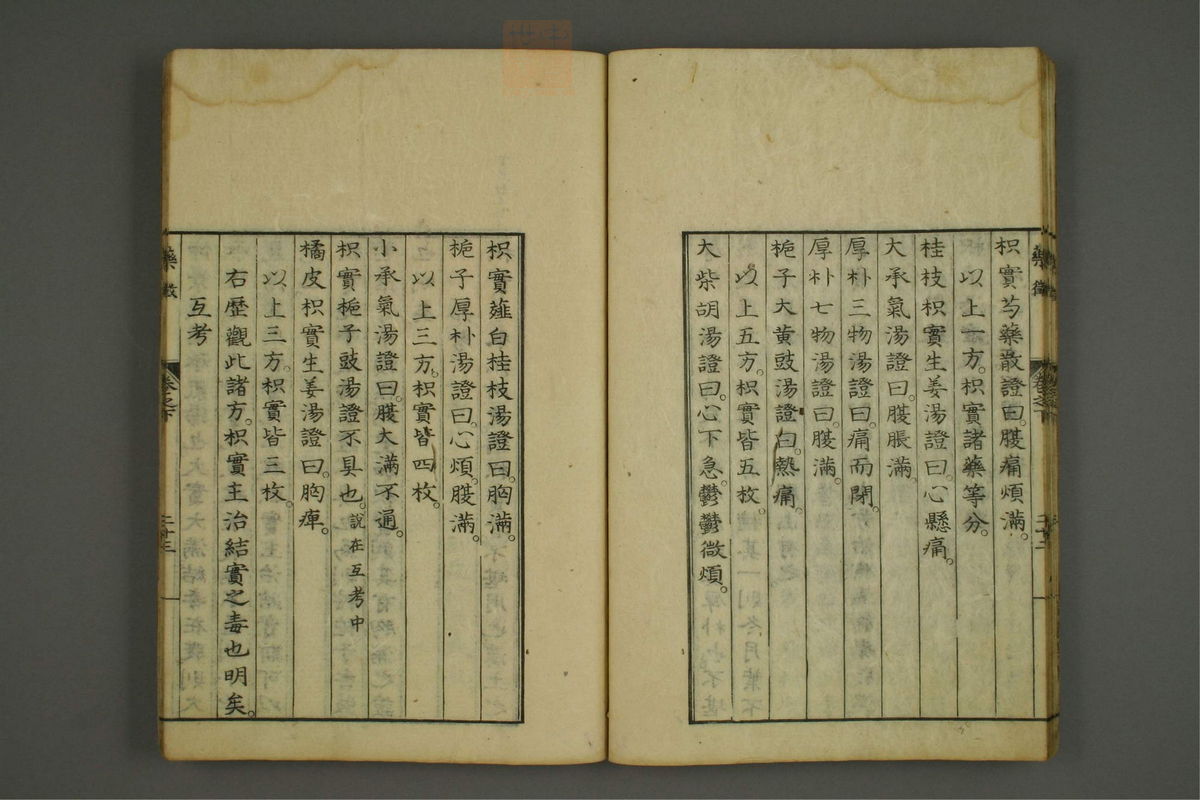 枳實芍藥散證曰。腹痛煩滿。
以上一方。枳實諸藥等分。
桂枝枳實生姜湯證曰。心懸痛。
大承氣湯證曰。腹脹滿。
厚朴三物湯證曰。痛而閉。
厚朴七物湯證曰。腹滿。
梔子大黃豉湯證曰。熱痛。
以上五方。枳實皆五枚。
大柴胡湯證曰。心下急。鬱鬱微煩。
枳實薤白桂枝湯證曰。胸滿。
梔子厚朴湯證曰。心煩。腹滿。
以上三方。枳實皆四枚。
小承氣湯證曰。腹大滿不通。
枳實梔子豉湯證不具也。說在互考中
橘皮枳實生姜湯證曰。胸痺。
以上三方。枳實皆三枚。
右歷觀此諸方。枳實主治結實之毒也明矣。
互考
藥徵
卷之下
二十三